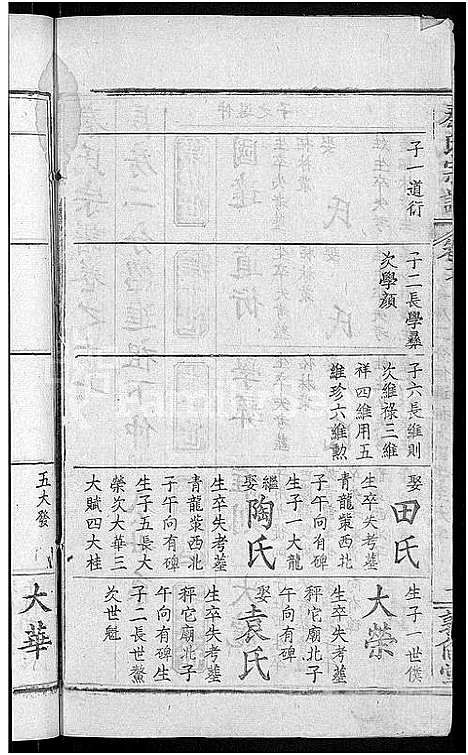 子一道衍
子二長學彝
次學顏
子六長維則
次維祿三維
祥四維用五
維珍六維勲
娶田氏
生卒失考墓
青龍蓥西北
子午向有碑
生子一大龍
繼娶陶氏
生卒失考墓
青龍蓥西北
子午向有碑
生子五長大
榮次大華三
大賦四大桂
五大發
生子一世僕
大榮
生卒失考墓
秤它廟北子
午向有碑
娶袁氏
生卒失考墓
秤它廟北子
午向有碑生
子二長世鰲
次世魁
大華